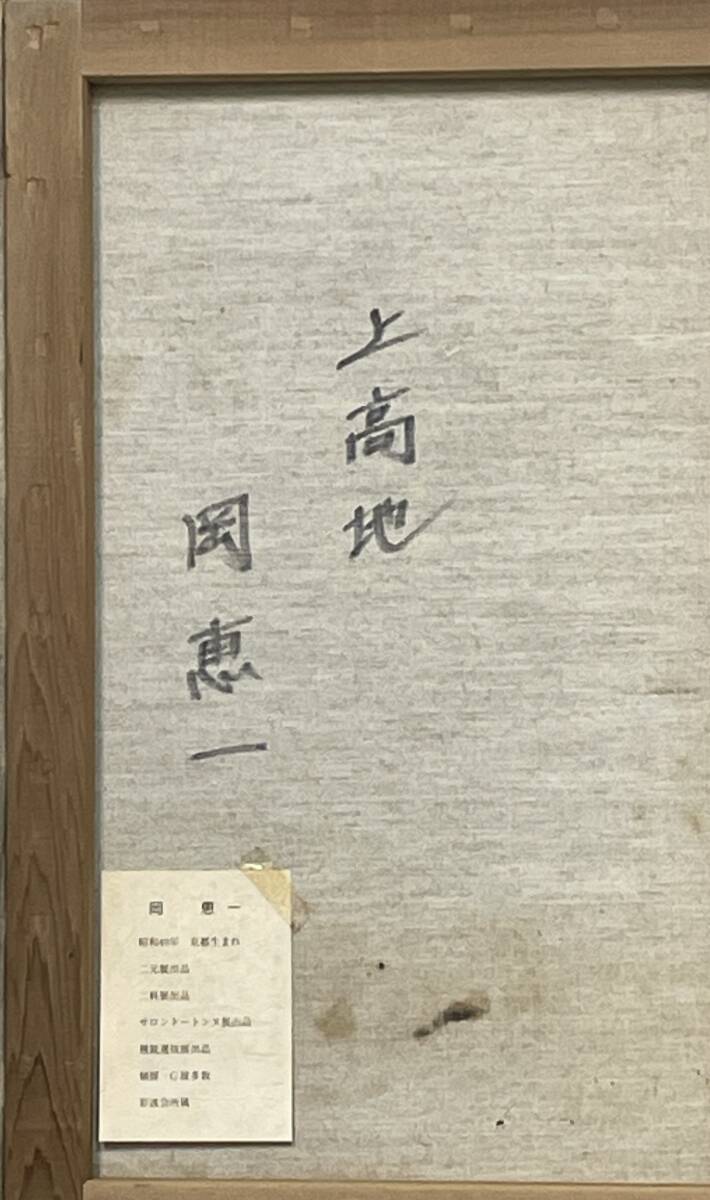 上高地
岡惠一
岡 惠一
昭和 年 京都生まれ
二元展出品
二科展出品
サロンドートンヌ展出品
選抜展出品
個展 G展多数
会所属